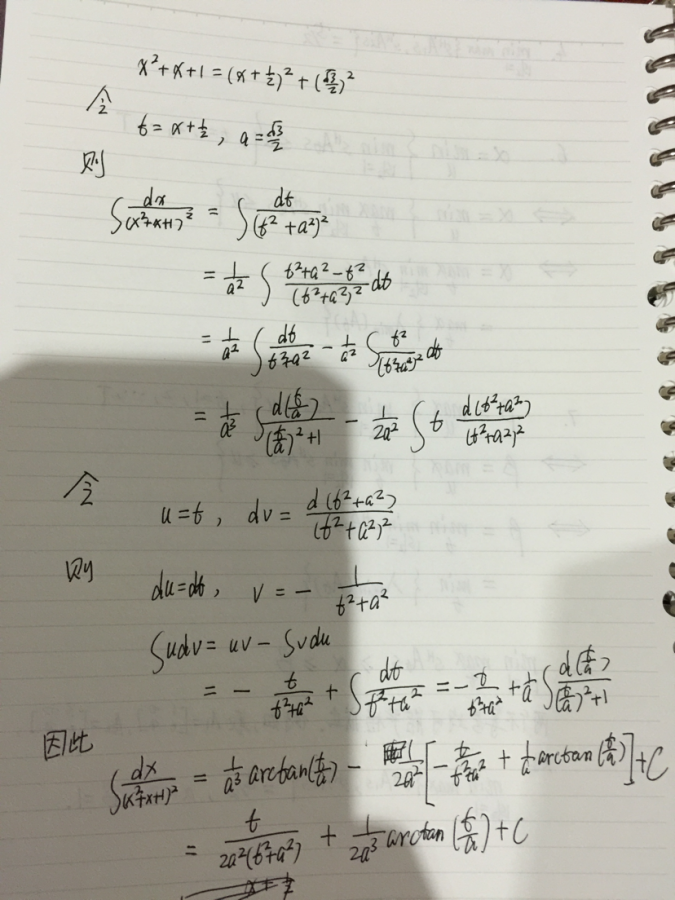 x²+x+1=(x+½)²+(√3/2)²
令
t=x+½, a=√3/2
则
∫dx/(x²+x+1)² = ∫dt/(t²+a²)²
= 1/a² ∫(t²+a²-t²)/(t²+a²)² dt
= 1/a² ∫dt/(t²+a²) - 1/a² ∫t²/(t²+a²)² dt
= 1/a³ ∫d(t/a)/((t/a)²+1) - 1/2a² ∫t d(t²+a²)/(t²+a²)²
令
u=t, dv= d(t²+a²)/(t²+a²)²
则
du=dt, v=- 1/(t²+a²)
∫udv= uv- ∫vdu
= - t/(t²+a²) + ∫dt/(t²+a²) = -t/(t²+a²) + 1/a ∫d(t/a)/((t/a)²+1)
因此
∫dx/(x²+x+1)² = 1/a³ arctan(t/a) - 1/2a² [-t/(t²+a²) + 1/a arctan(t/a)]+C
= t/2a²(t²+a²) + 1/2a³ arctan(t/a)+C